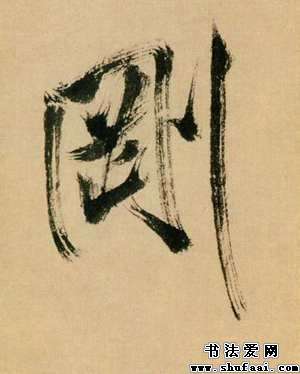 剛
书法爱网
www.shufaai.com